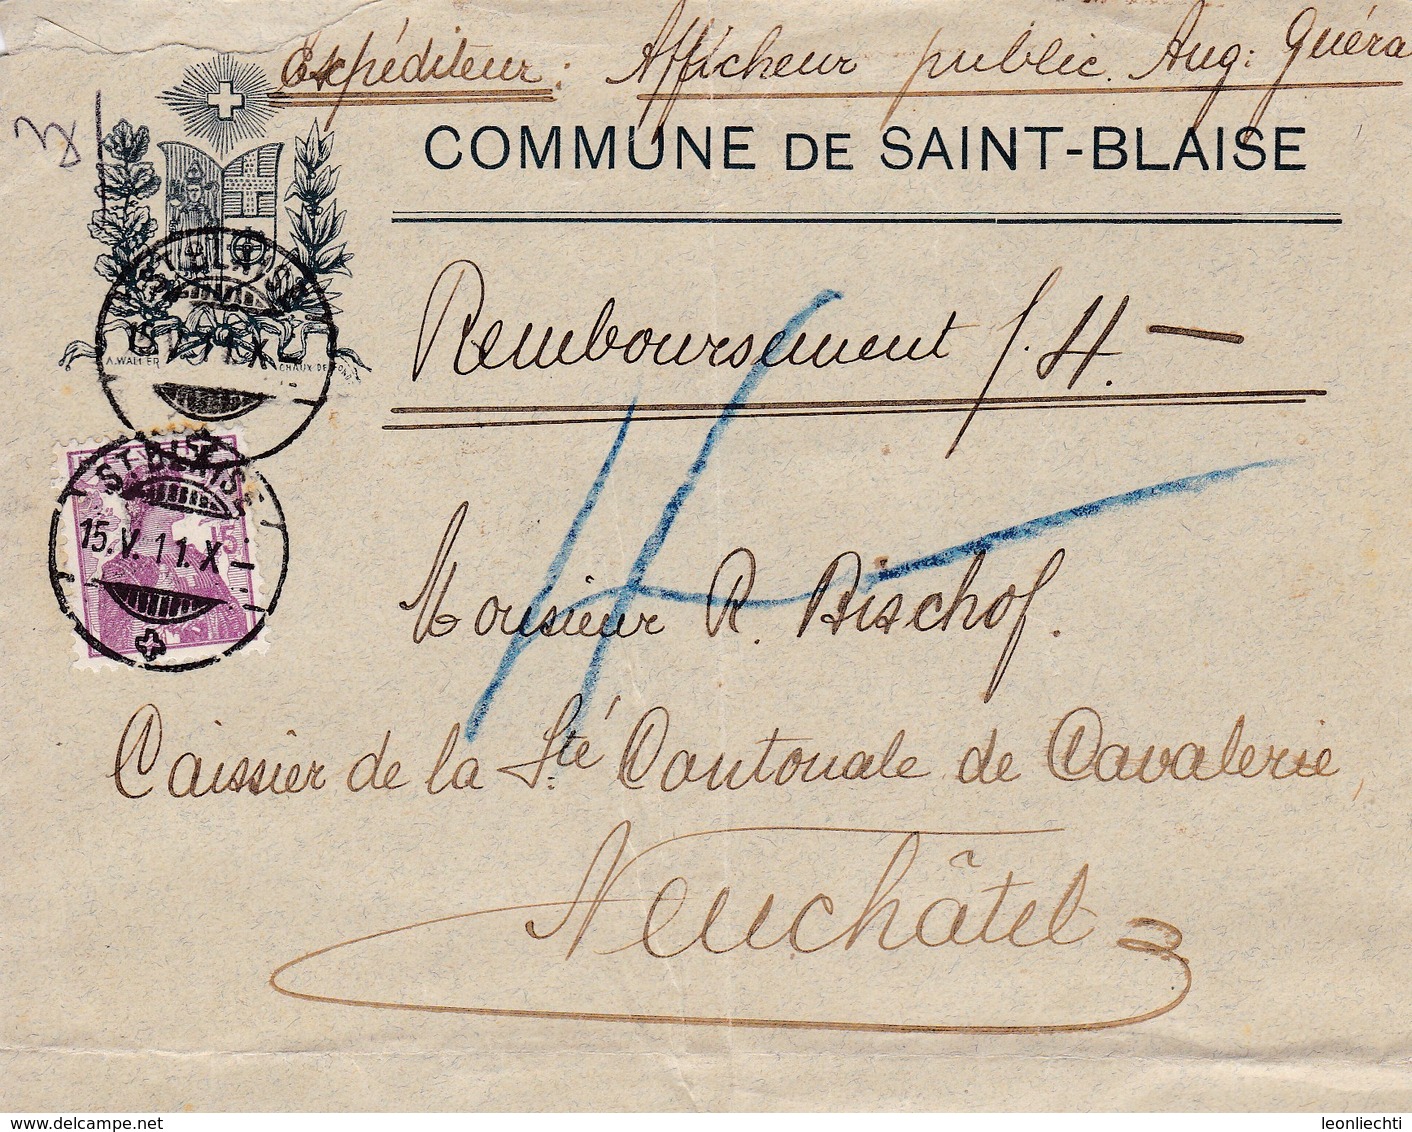 Expéditeur: Afficheur public. Aug: Quéra
COMMUNE DE SAINT-BLAISE
ST. BLAISE
15.V.11.X
A. WALTER
CHAUX DE FONDS
Remboursement f. 4.—
15
ST. BLAISE
15.V.11.X
4
Monsieur R. Bischof.
Caissier de la Sté Cantonale de Cavalerie,
Neuchâtel
www.delcampe.net
leonliechti